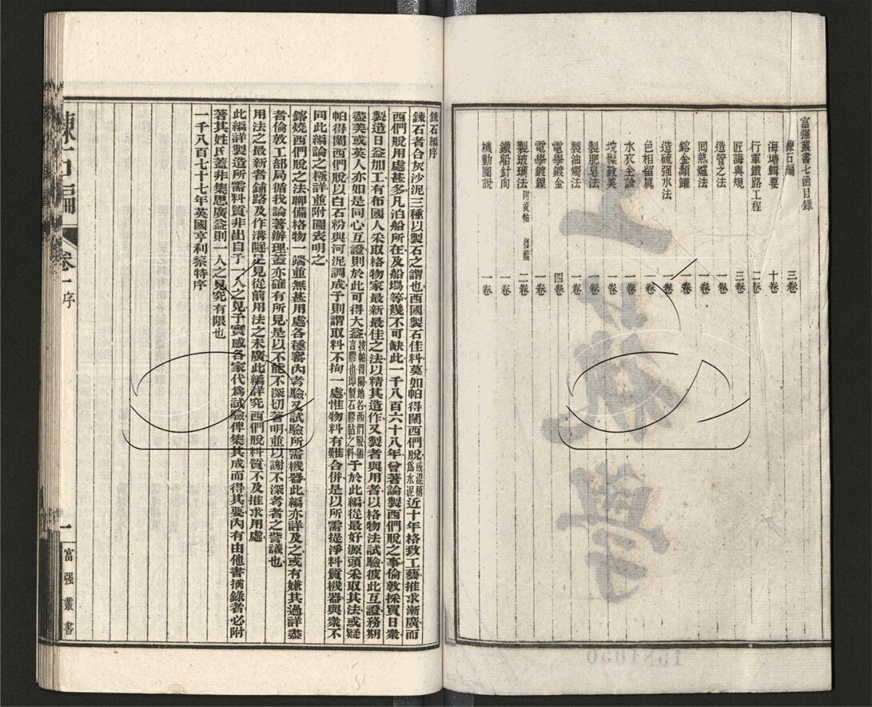 富强叢書七函目錄
鍊石編 三卷
海塘輯要 十卷
行軍鐵路工程 二卷
匠誨與規 三卷
造管之法 一卷
回熱爐法 一卷
鎔金類罐 一卷
造硫强水法 一卷
色相留眞 一卷
水衣全論 一卷
垸髹致美 一卷
製肥皂法 二卷
製油燭法 二卷
電學鍍金 四卷
電學鍍鎳 一卷
製玻璃法 二卷
鐵船針向 一卷
機動圖說 一卷
鍊石編序
鍊石者合灰沙泥三種以製石之謂也西國製石佳料莫如帕得蘭西們脫近十年格致工藝推求漸廣而
西們脫用處甚多凡泊船所在及船塢等幾不可缺此一千八百六十八年曾著論製西們脫之事倫敦採買日衆
製造日益加工有布國人采取格物家最新最佳之法以精其造作又製者與用者以格物法試驗彼此互證務期
盡美或英人亦如是同心互證則於此可得大益予於此編從最好源頭采取其法或疑
帕得蘭西們脫以白石粉與河泥調成予則謂取料不拘一處惟物料有難合併是以所需提淨料質機器與衆不
同此編論之極詳並附圖表明之
鎔燒西們脫之法聊備格物一端並無甚用處各種窰內考驗及試驗所需機器此編亦詳及之或有嫌其過詳盡
者倫敦工部局循我論著辦理蓋亦確有所見是以不能不深切著明並以謝不深考者之訾議也
用法之最新者鋪路及作溝隧足見從前用法之未廣此編詳究西們脫料質不及推求用處
此編詳製造所需料質非出自予一人之見予實感各家代爲試驗俾集其成而得其要內有由他書摘錄者必附
著其姓氏蓋非集思廣益則一人之見究有限也
一千八百七十七年英國亨利黎特序
鍊石編
卷一
序
一
富强叢書